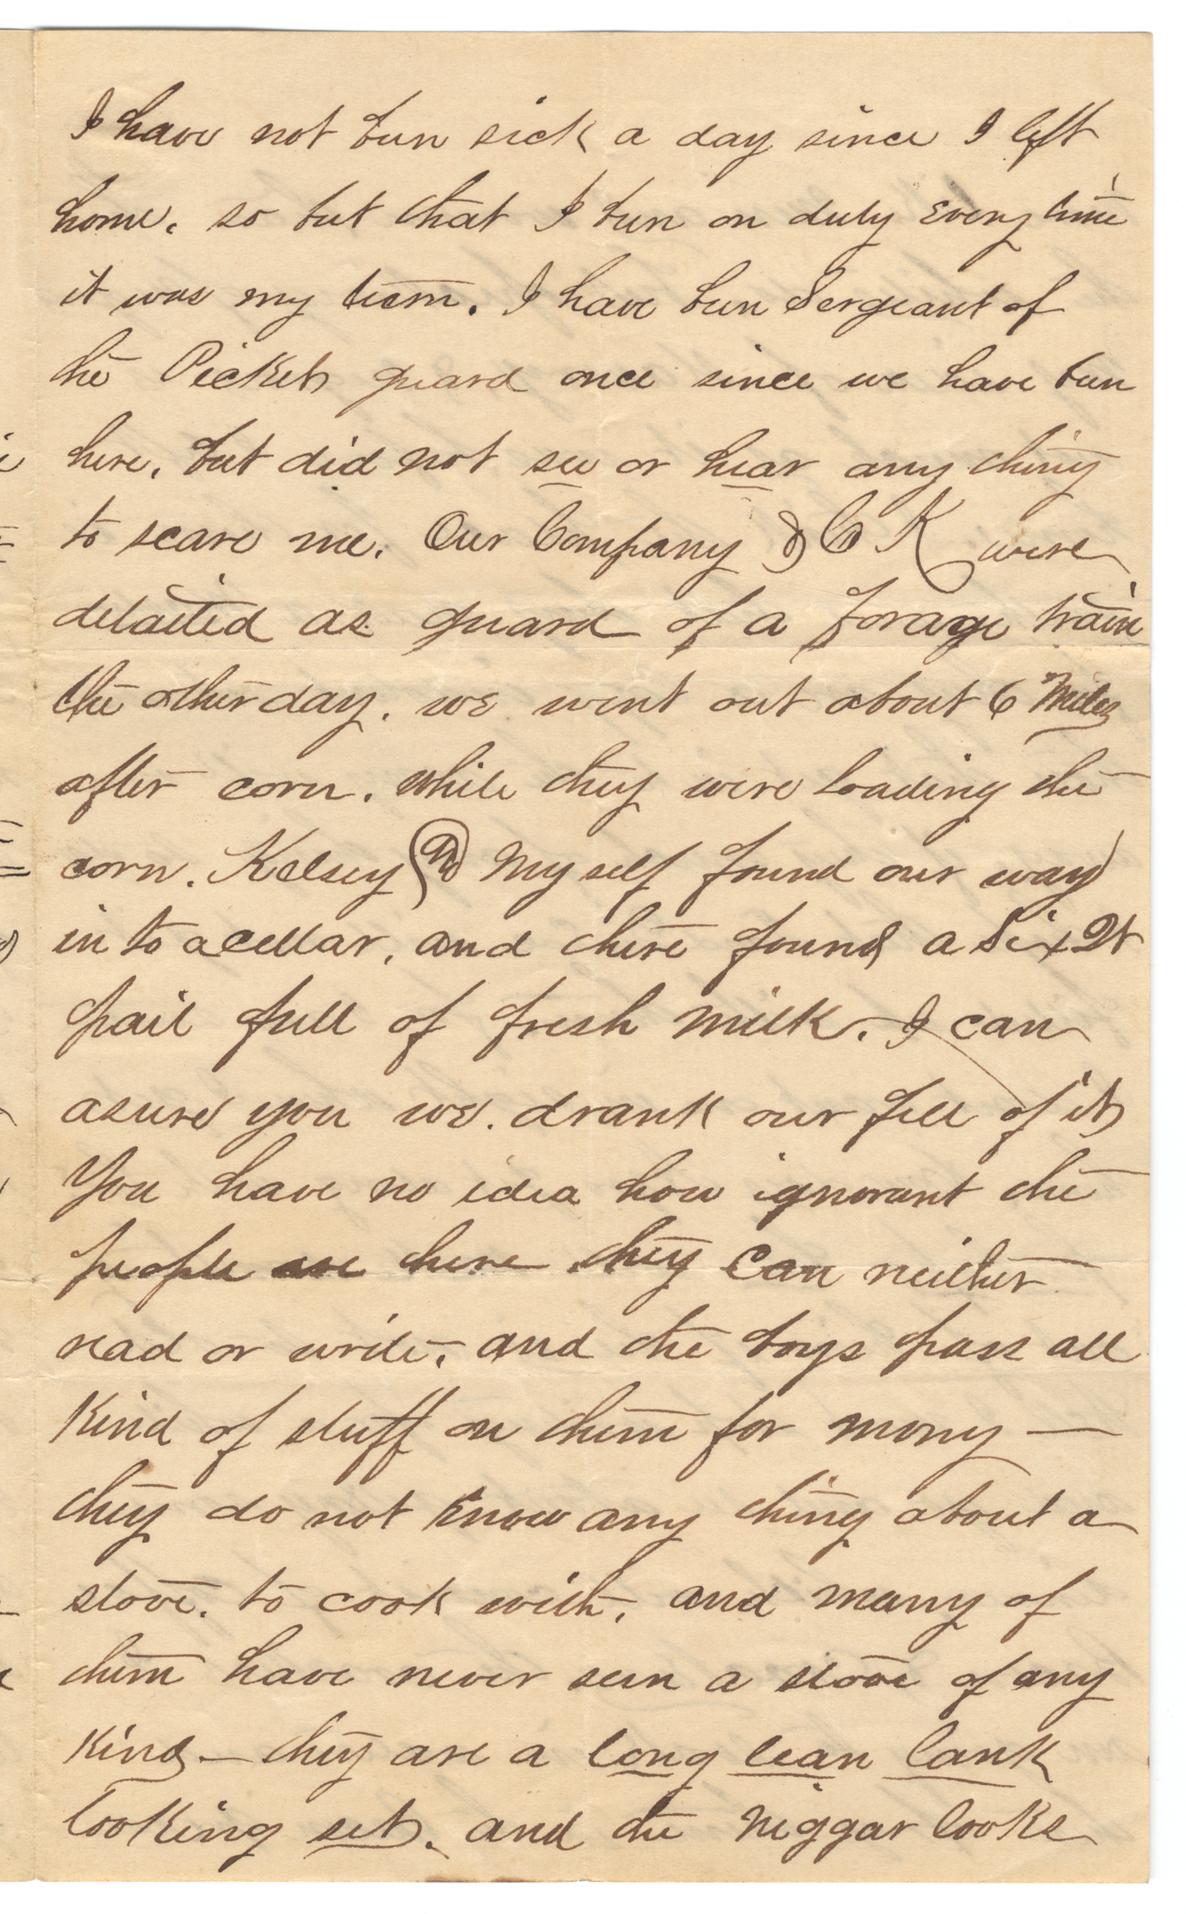 I have not bun sick a day since I left
home. so but that I bun on duty every time
it was my turn. I have bun Sergeant of
the Pickets guard once since we have bun
here, but did not see or hear any thing
to scare me. Our Company & Co K were
detailed as guard of a forage train
the other day. we went out about 6 Miles
after corn. while they were loading the
corn. Kelsey and Myself found our way
in to a cellar, and there found a Six Qt
pail full of fresh milk. I can
asure you we. drank our fill of it
You have no idea how ignorant the
people are here they can neither
read or write, and the boys pass all
kind of stuff on them for mony —
they do not know any thing about a
stove. to cook with, and many of
them have never seen a stove of any
kind — they are a long lean lank
looking set. and the niggar looks